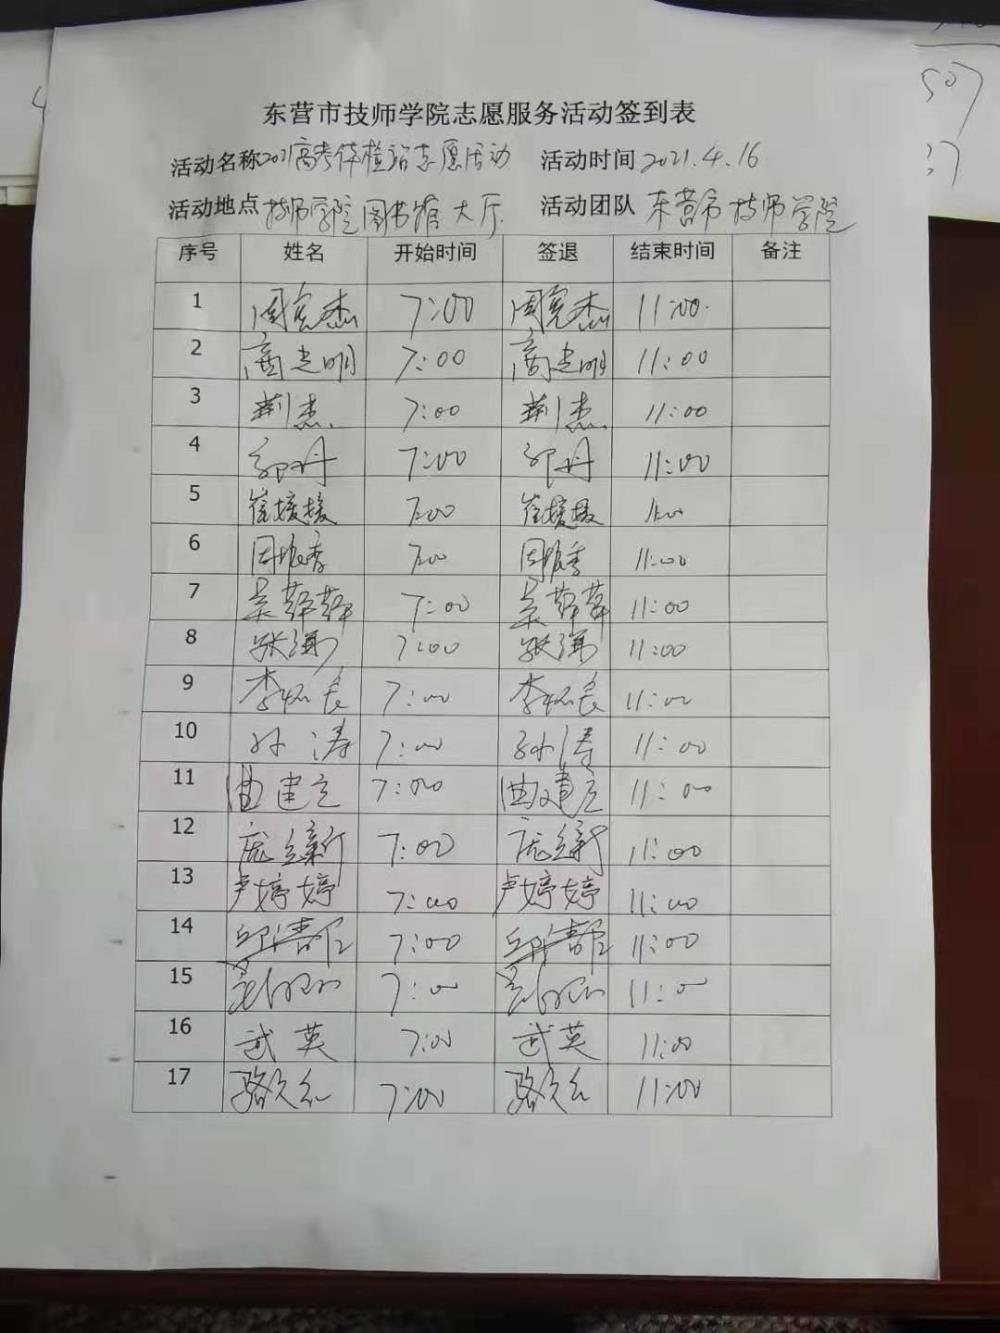 东营市技师学院志愿服务活动签到表
活动名称2021高考体检站志愿活动 活动时间2021.4.16
活动地点技师学院图书馆大厅 活动团队东营市技师学院
序号 姓名 开始时间 签退 结束时间 备注
1 周宪杰 7:00 周宪杰 11:00
2 商光明 7:00 商光明 11:00
3 荆杰 7:00 荆杰 11:00
4 7:00 11:00
5 崔媛媛 7:00 崔媛媛 11:00
6 7:00 11:00
7 7:00 11:00
8 7:00 11:00
9 李怀长 7:00 李怀长 11:00
10 孙涛 7:00 孙涛 11:00
11 曲建立 7:00 曲建立 11:00
12 庞立新 7:00 庞立新 11:00
13 卢婷婷 7:00 卢婷婷 11:00
14 7:00 11:00
15 7:00 11:00
16 武英 7:00 武英 11:00
17 7:00 11:00